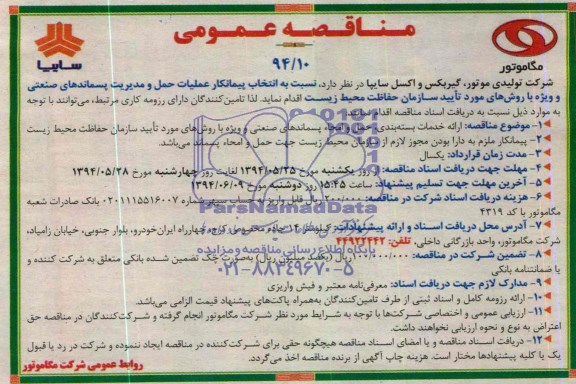 مناقصه عمومی
۹۴/۱۰
مگاموتور
سایپا
شرکت تولیدی موتور، گیربکس و اکسل سایپا در نظر دارد، نسبت به انتخاب پیمانکار عملیات حمل و مدیریت پسماندهای صنعتی
و ویژه با روش‌های مورد تأیید سازمان حفاظت محیط زیست اقدام نماید. لذا تامین‌کنندگان دارای رزومه کاری مرتبط، می‌توانند با توجه
به موارد ذیل نسبت به دریافت اسناد مناقصه اقدام نمایند:
۱- موضوع مناقصه: ارائه خدمات بسته‌بندی، حمل و امحاء پسماندهای صنعتی و ویژه با روش‌های مورد تأیید سازمان حفاظت محیط زیست
۲- پیمانکار ملزم به دارا بودن مجوز لازم از سازمان محیط زیست جهت حمل و امحاء پسماند می‌باشد.
۳- مدت زمان قرارداد: یکسال
۴- مهلت جهت دریافت اسناد مناقصه: از روز یکشنبه مورخ ۱۳۹۴/۰۵/۲۵ لغایت روز چهارشنبه مورخ ۱۳۹۴/۰۵/۲۸
۵- آخرین مهلت جهت تسلیم پیشنهاد: ساعت ۱۵:۴۵ روز دوشنبه مورخ ۱۳۹۴/۰۶/۰۹
۶- هزینه دریافت اسناد شرکت در مناقصه: ۲۰۰/۰۰۰ ریال قابل واریز به حساب سپهر شماره ۰۲۰۱۱۱۵۵۱۶۰۰۷ بانک صادرات شعبه
مگاموتور با کد ۴۳۱۹
۷- آدرس محل دریافت اسناد و ارائه پیشنهادات: کیلومتر ۱۴ جاده مخصوص کرج، چهارراه ایران‌خودرو، بلوار جنوبی، خیابان زامیاد،
شرکت مگاموتور، واحد بازرگانی داخلی، تلفن: ۴۴۹۲۲۴۴۲
۸- تضمین شرکت در مناقصه: ۱۰۰/۰۰۰/۰۰۰ ریال (یکصد میلیون ریال) به‌صورت چک تضمین شده بانکی متعلق به شرکت کننده و
یا ضمانتنامه بانکی
۹- مدارک لازم جهت دریافت اسناد: معرفی‌نامه معتبر و فیش واریزی
۱۰- ارائه رزومه کامل و اسناد ثبتی از طرف تامین‌کنندگان به‌همراه پاکت‌های پیشنهاد قیمت الزامی می‌باشد.
۱۱- ارزیابی عمومی و اختصاصی شرکت‌ها با توجه به شرایط مورد نظر شرکت مگاموتور انجام گرفته و شرکت‌کنندگان در مناقصه حق
اعتراض به نوع و نحوه ارزیابی نخواهند داشت.
۱۲- دریافت اسناد مناقصه و یا امضای اسناد مناقصه هیچگونه حقی برای شرکت‌کننده در مناقصه ایجاد ننموده و شرکت در رد یا قبول
یک یا کلیه پیشنهادها مختار است. هزینه چاپ آگهی از برنده مناقصه اخذ می‌گردد.
روابط عمومی شرکت مگاموتور
ParsNamadData
پایگاه اطلاع رسانی مناقصه و مزایده
۰۲۱-۸۸۳۴۹۶۷۰-۵